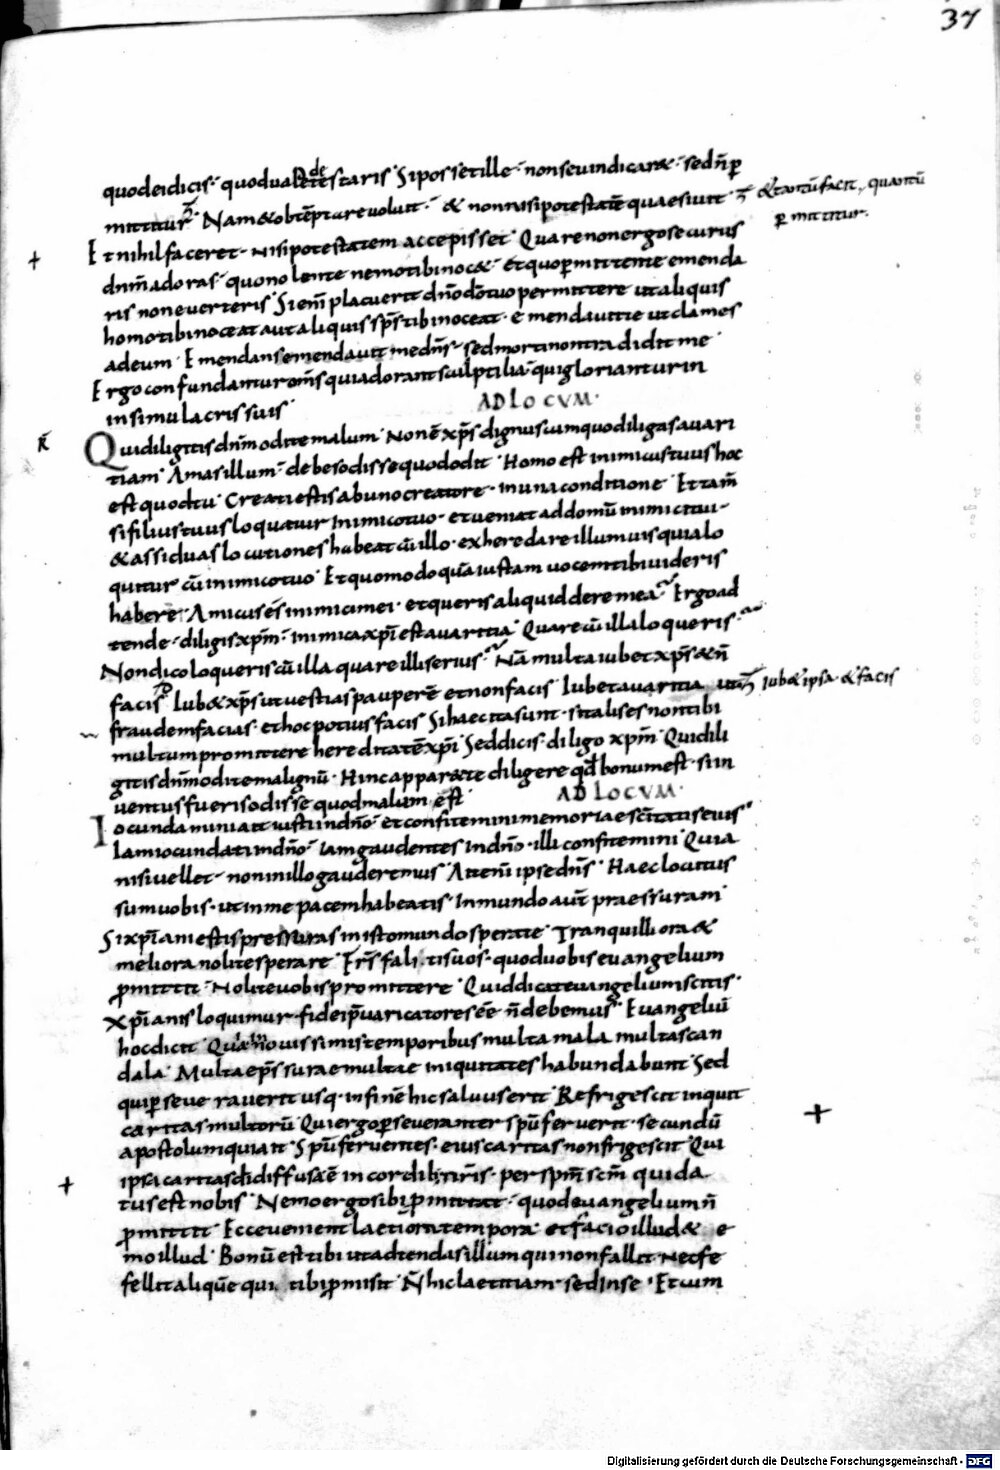 37
quodeidicis· quodvadetestaris· Siposset ille· nonsevindicar&· sedn̄ꝑ
mittitur· Nam&obtēptarevoluit· & nonnisipotestatē quaesivit & tantū facit, quantū
ꝑmittitur.
Et nihil faceret· nisipotestatem accepisset· Quarenonergosecurus
dnm̄ adoras· quonolente nemotibinoc&· etquoꝑmittente emenda
ris non everteris· Sienī placuerit dn̄o dō tuo permittere utaliquis
homotibinoceat autaliquis sp̄s tibinoceat· emendavitte utclames
adeum· Emendansemendavit medn̄s· sedmortinontradidit me
Ergo confundantur om̄s quiadorant sculptilia· quigloriantur in
insimulacris suis
AD LOCUM·
Quidiligitis dnm̄ oditemalum· Nonē xp̄s dignuscumquodiligasavari
tiam· Amasillum· debesodissequododit· Homo est inimicustuus hoc
est quodtu· Creatiestisabunocreatore· inunaconditione· Ettam̄
sifiliustuusloquatur inimicotuo· etveniat addomū inimicitui·
&assiduas locutiones habeat cū illo· exheredareillumvisquialo
quitur cū inimicotuo· Etquomodo quāiustam vocemtibivideris
habere· Amicus ēs inimicimei· etqueris aliquid deremea· Ergoad
tende· diligisxpm̄· inimicaxp̄i estavaritia· Quarecū illaloqueris·
Nondicoloqueriscū illa quareilliservis· Nā multaiubetxp̄s&n̄
facis· Iub&xp̄s utvestiaspauperē etnonfacis· Iubetavaritia ut iub& ipsa·&facis
fraudemfacias· ethocpotiusfacis· Sihaecitasunt· sitalises nontibi
multumpromittere hereditatēxp̄i· Seddicis· diligo xpm̄· Quidili
gitisdnm̄oditemalignū· Hincapparette diligere qd̄bonumest· siin
ventusfuerisodisse quodmalum est·
AD LOCUM·
Iocundaminiat iustiindn̄o· etconfitemini memoriaesc̄itatiseius·
Iamiocundatiindn̄o· iamgaudentes indn̄o· illi confitemini· Quia
nisivellet· noninillogauderemus· Attenī ipsedn̄s· Haeclocutus
sumvobis· utinme pacemhabeatis· Inmundo aut̄ praessuram·
Sixp̄iani estispressuras inistomundosperate· Tranquilliora&
meliora nolitesperare· Fr̄s fallitisvos· quodvobisevangelium
ꝑmittit· Nolitevobispromittere· Quiddicatevangeliumscitis·
Xp̄ianisloquimur· fideip̄varicatoresēe n̄debemus· Evangeliū
hocdicit· novissimistemporibusmulta mala multascan
dala· Multaep̄ssuraemultae iniquitates habundabunt· Sed
quiꝑseveraverit usq· infinē hicsalvuserit· Refrigescit inquit
caritas multorū· Quiergoꝑseveranter spū ferverit· secundū
apostolumquiait· Spū ferventes· eiuscaritas nonfrigescit· Qui
ipsacaritasdī diffusaē incordib;nr̄is· perspm̄scm̄ quida
tusest nobis· Nemoergosibiꝑmittat· quodevangeliumn̄
ꝑmittit· Eccevenient laetioratempora· etfacioillud& e
moillud· Bonū est tibi utadtendasillum quinonfallit· Necfe
fellitaliquē qui tibiꝑmisit· N̄ hiclaetitiam· sedinse· Etcum
Digitalisierung gefördert durch die Deutsche Forschungsgemeinschaft - DFG